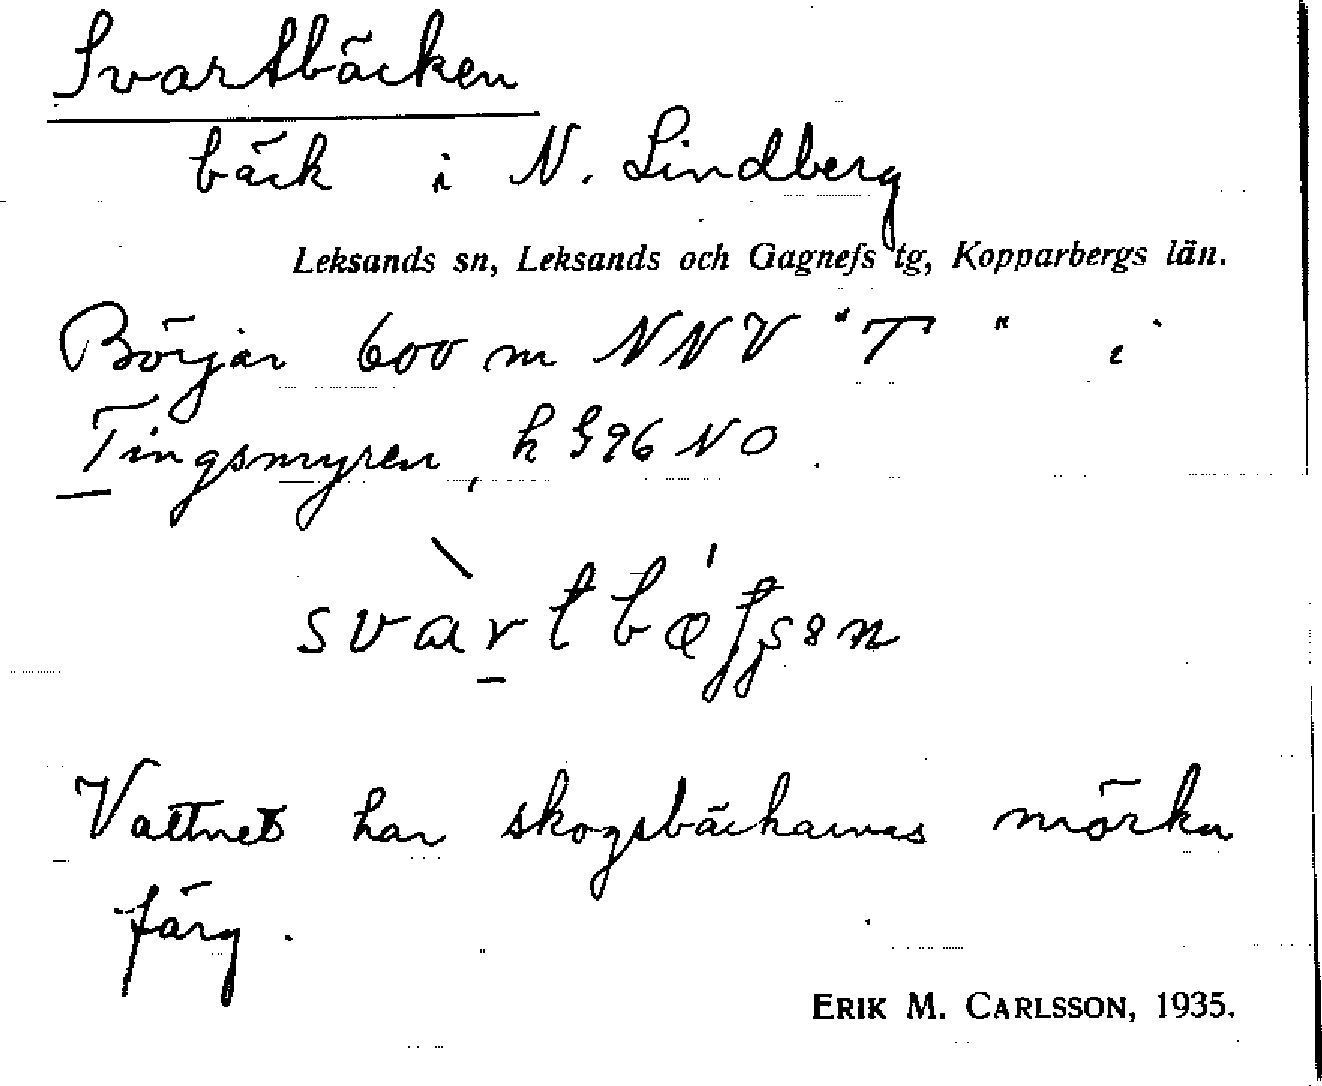 Svartbäcken
bäck i N. Lindberg
Leksands sn, Leksands och Gagnefs tg, Kopparbergs län.
Börjar 600 m NNV "T" i
Tingsmyren, k 396 NO.
Vattnet har skogsbäckarnas mörka
färg.
ERIK M. CARLSSON, 1935.